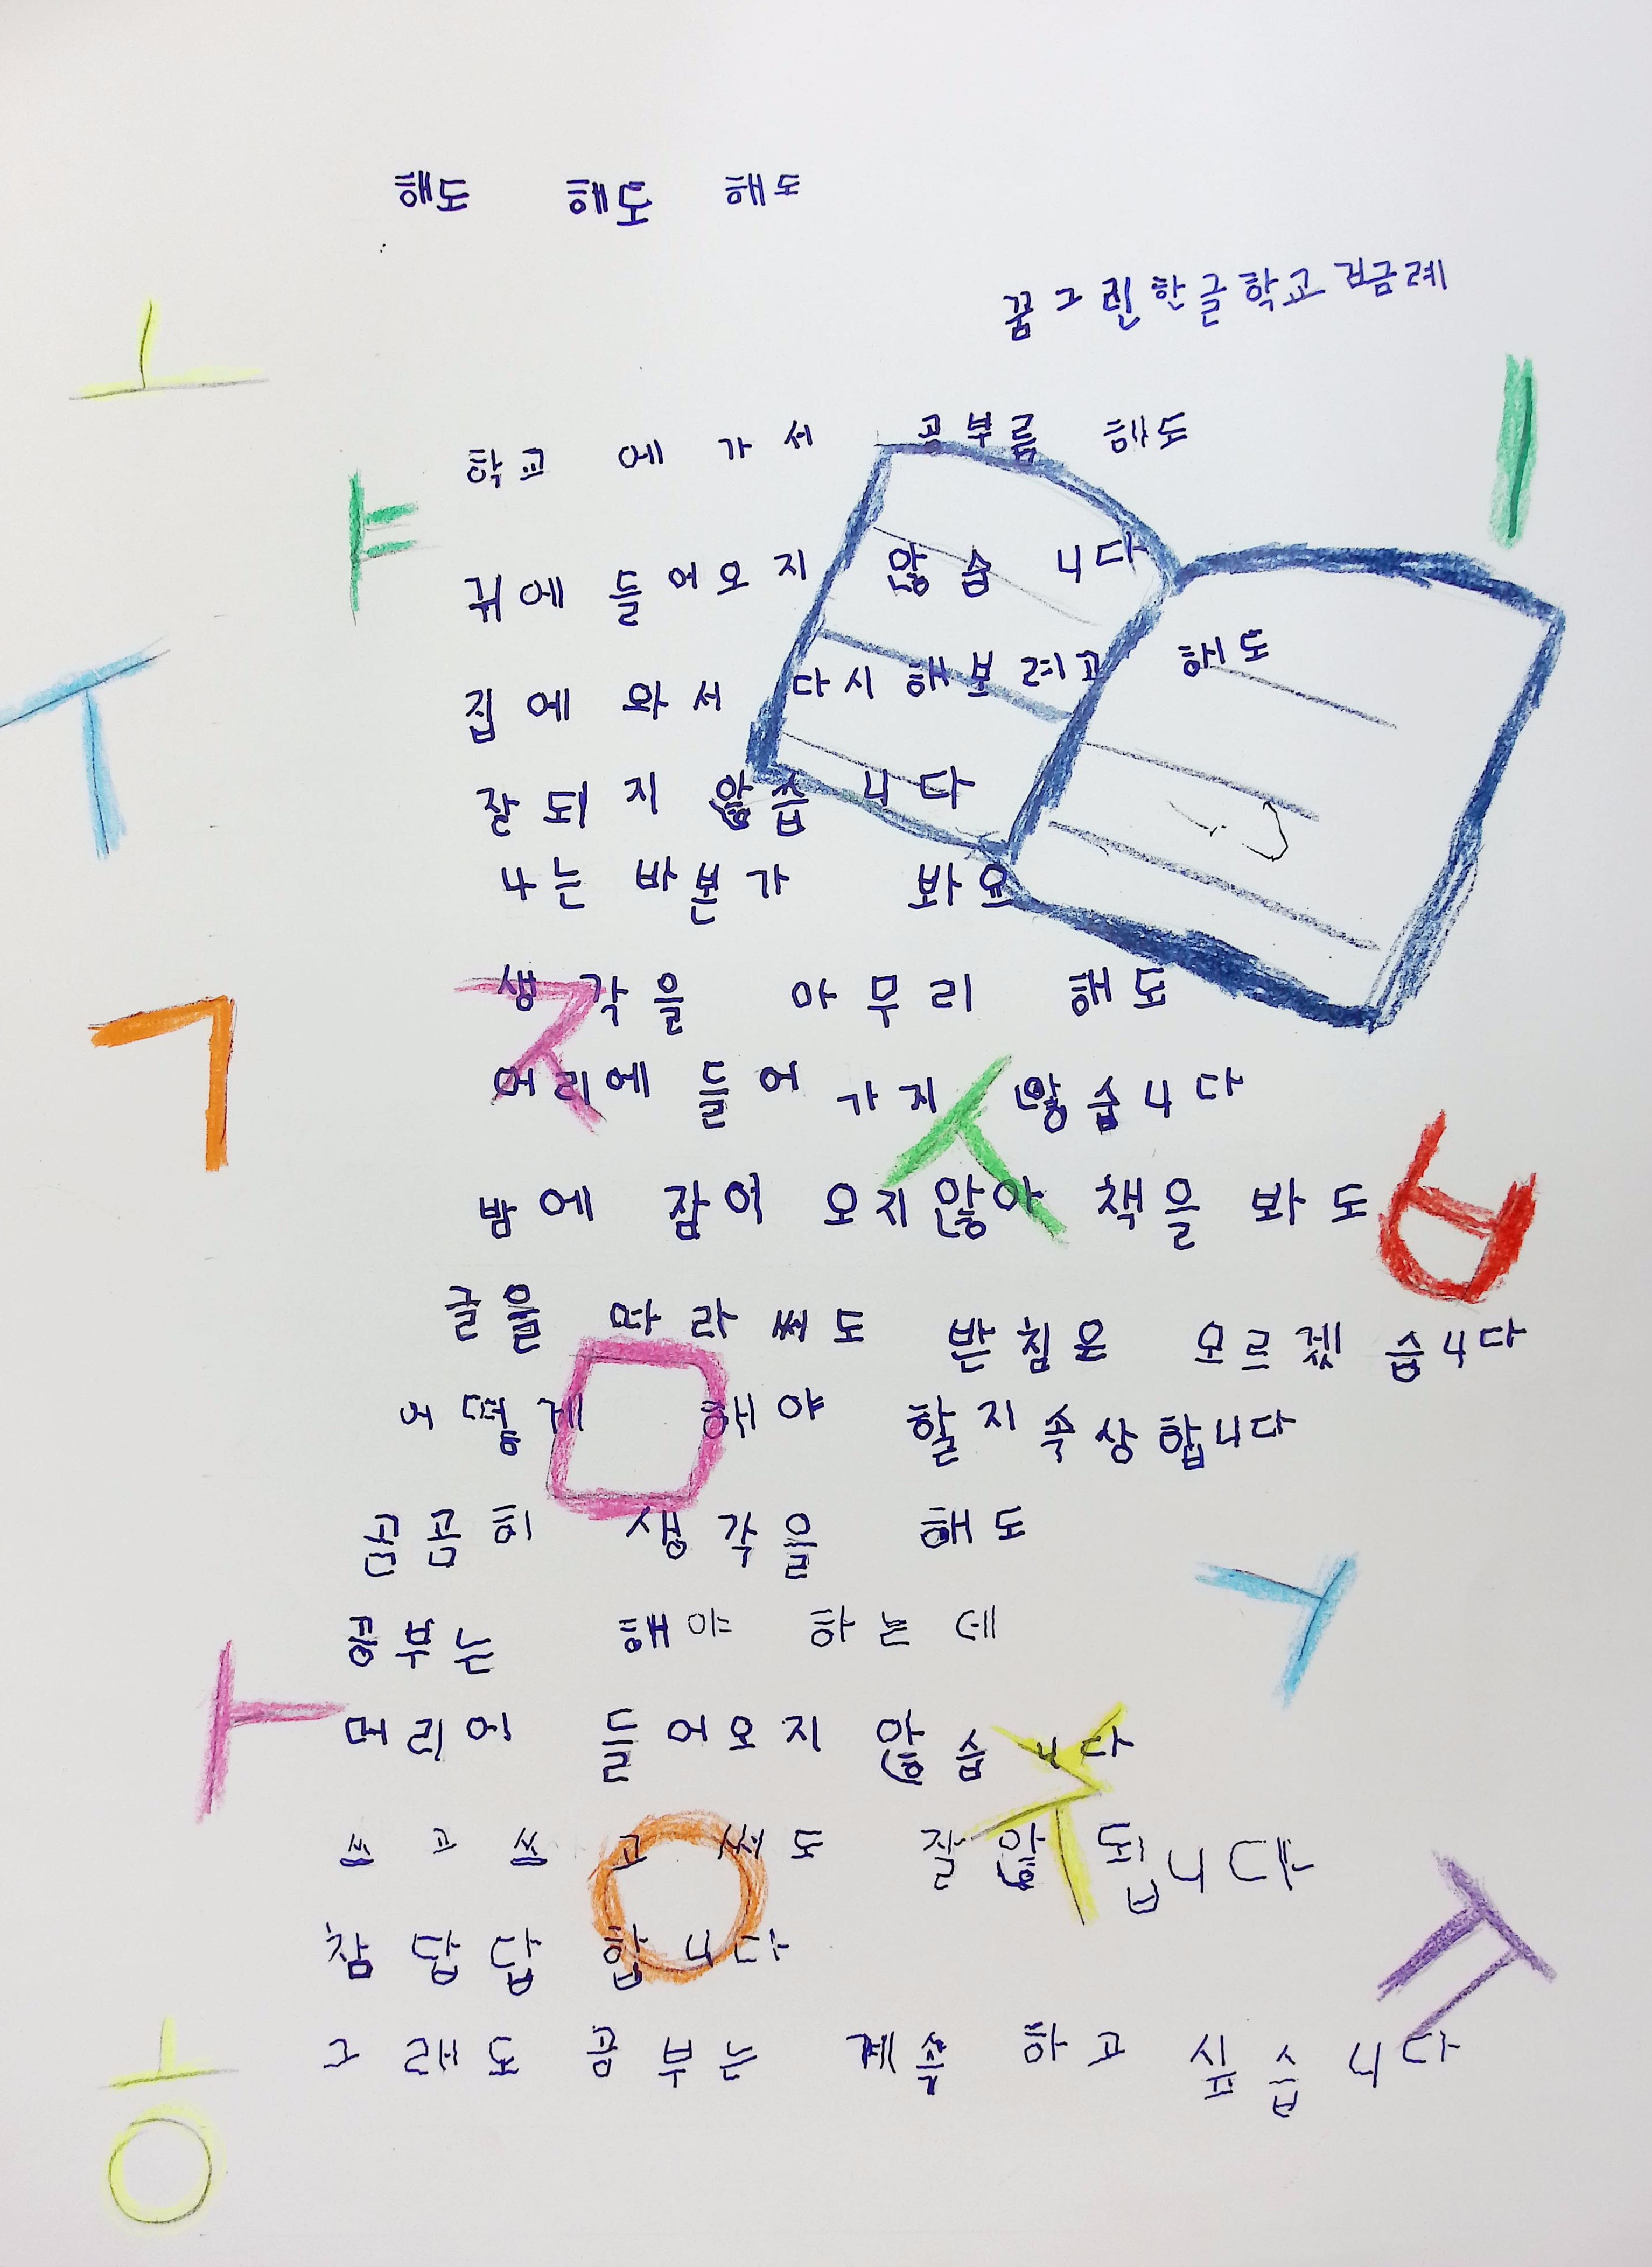 해도 해도 해도
꿈그린한글학교 김금례
학교에 가서 공부를 해도
귀에 들어오지 않습니다
집에 와서 다시 해보려고 해도
잘되지 않습니다
나는 바본가 봐요
생각을 아무리 해도
머리에 들어가지 않습니다
밤에 잠이 오지않아 책을 봐도
글을 따라써도 받침은 모르겠습니다
어떻게 해야 할지 속상합니다
곰곰히 생각을 해도
공부는 해야 하는데
머리에 들어오지 않습니다
쓰고 쓰고 써도 잘 않됩니다
참 답답합니다
그래도 공부는 계속 하고 싶습니다